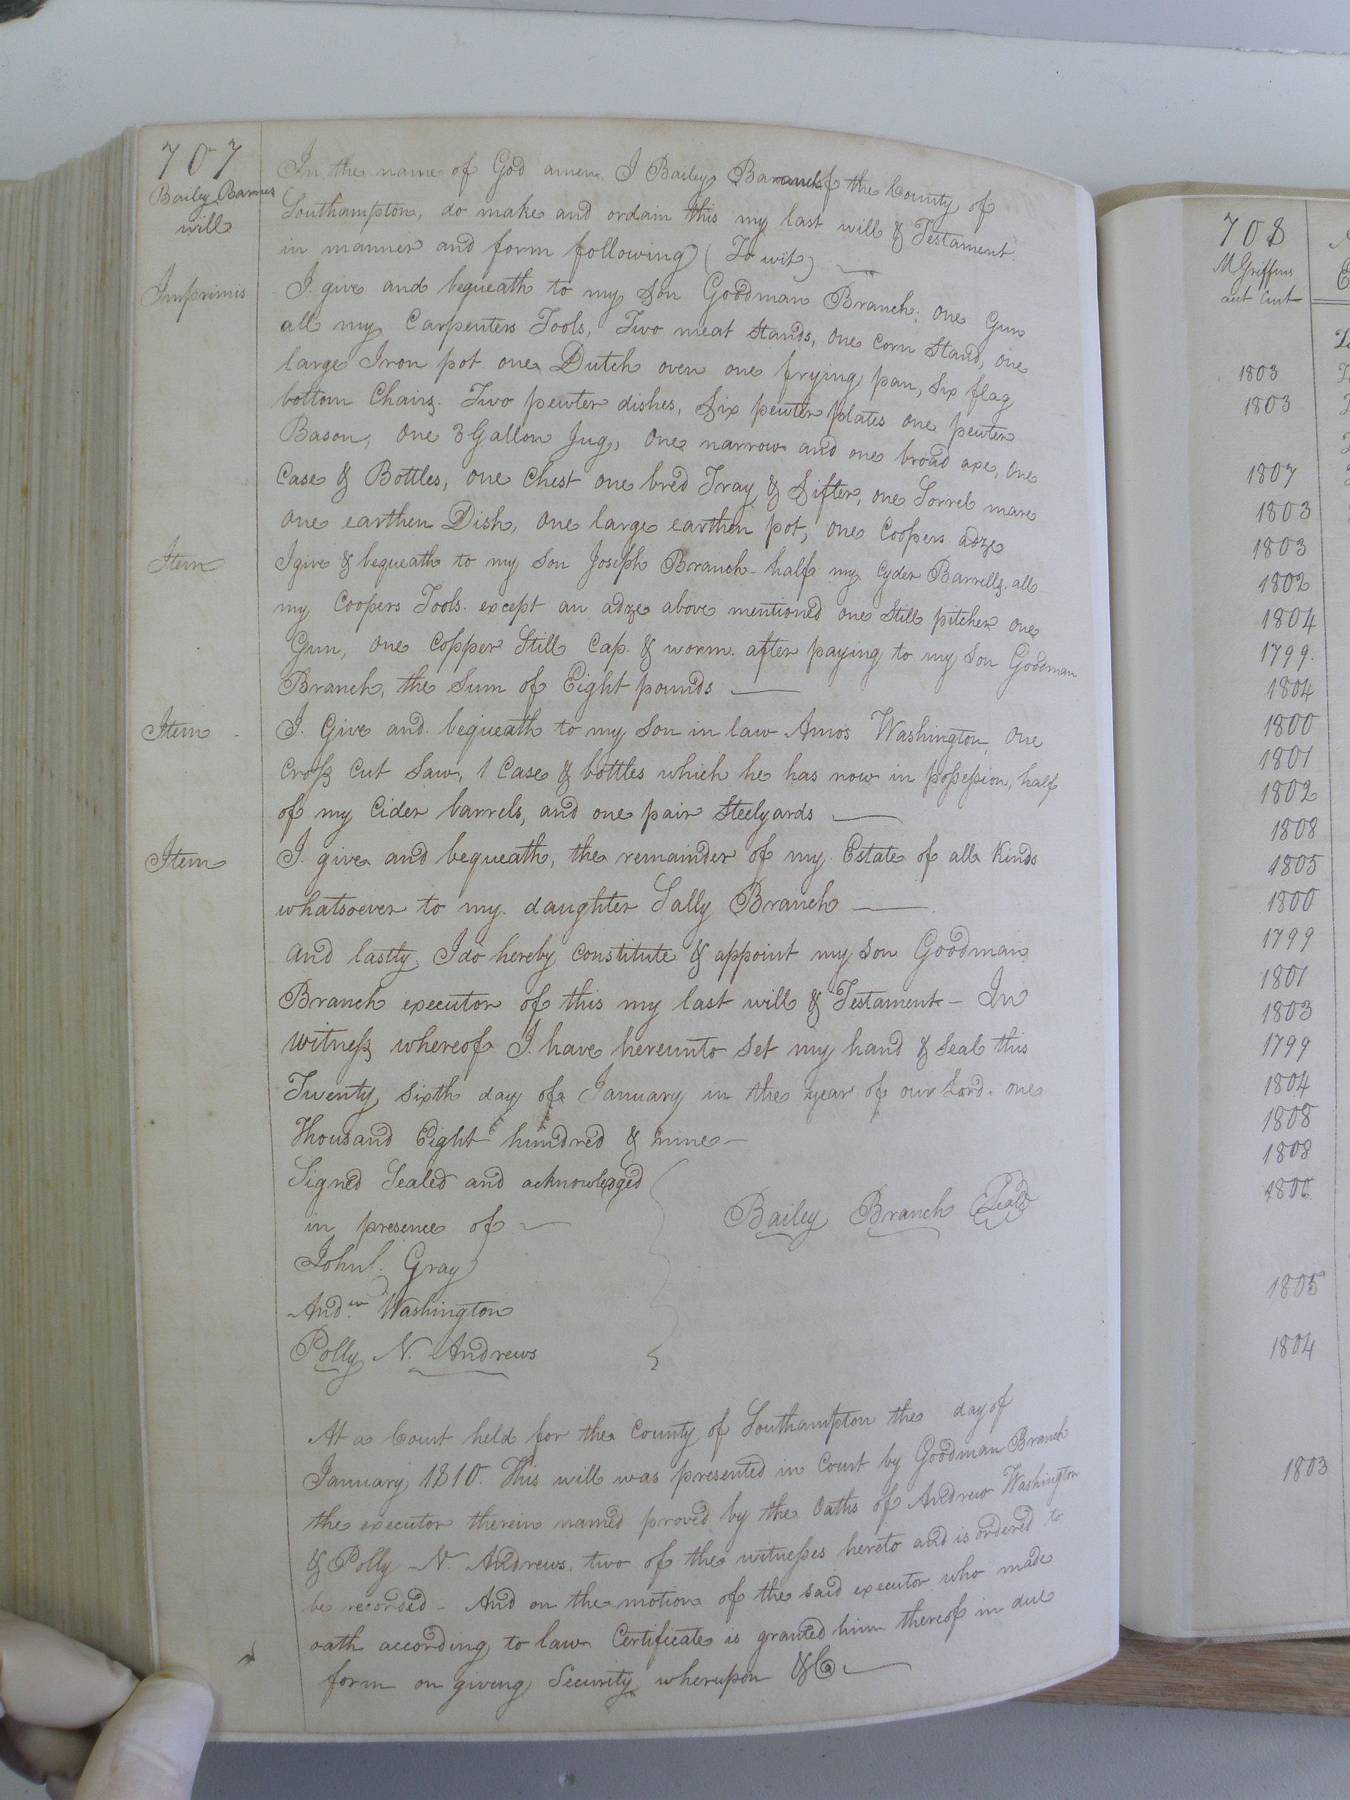 707
Bailey Barnes
will
In the name of God amen. I Bailey of the County of
Southampton, do make and ordain this my last will & Testament
in manner and form following (To wit)
Imprimis
I give and bequeath to my son Goodman Branch: one Gun
all my Carpenters Tools, Two meat stands, one corn stand, one
large Iron pot one Dutch oven one frying pan, six flag
bottom Chairs. Two pewter dishes, six pewter plates one pewter
Bason, one 3 Gallon Jug, one narrow and one broad axe, one
Case & Bottles, one chest one bred Tray & Sifter, one Sorrel mare
one earthen Dish, one large earthen pot, one Coopers adze
Item
I give & bequeath to my son Joseph Branch half my Cyder Barrells. all
my Coopers Tools. except an adze above mentioned one Still pitcher one
Gun, one Copper Still Cap. & worm. after paying to my son Goodman
Branch, the sum of Eight pounds
Item
I. Give and bequeath to my son in law Amos Washington, one
Cross cut saw, 1 Case & bottles which he has now in possession, half
of my Cider barrels, and one pair Steelyards
Item
I. give and bequeath, the remainder of my Estate of all kinds
whatsoever to my daughter Sally Branch
and lastly I do hereby constitute & appoint my son Goodman
Branch executor of this my last will & Testament - In
witness whereof I have hereunto set my hand & seal this
Twenty sixth day of January in the year of our Lord. one
thousand Eight hundred & nine -
Signed Sealed and acknowledged
in presence of
Bailey Branch Seal
John Gray
Andw Washington
Polly N. Andrews
At a Court held for the County of Southampton the day of
January 1810. This will was presented in Court by Goodman Branch
the executor therein named proved by the Oaths of Andrew Washington
& Polly N. Andrews, two of the witnesses hereto and is ordered to
be recorded - And on the motion of the said executor who made
oath according to law Certificate is granted him thereof in due
form on giving Security wherupon &C
708
M Griffins
1803
1803
1807
1803
1803
1802
1804
1799.
1804
1800
1801
1802
1808
1805
1800
1799
1801
1803
1799
1804
1808
1808
1805
1804
1803